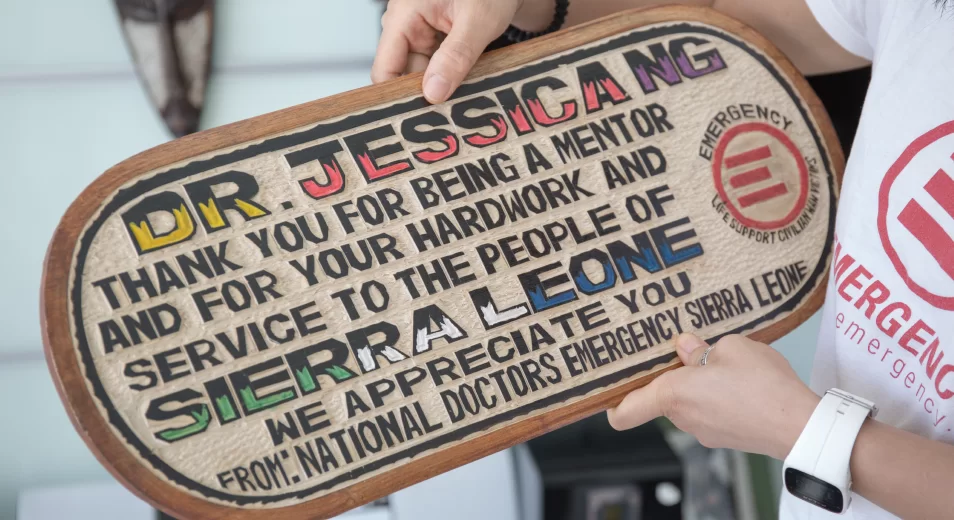 DR. JESSICA NG
THANK YOU FOR BEING A MENTOR
AND FOR YOUR HARDWORK AND
SERVICE TO THE PEOPLE OF
SIERRA LEONE
WE APPRECIATE YOU
FROM: NATIONAL DOCTORS EMERGENCY SIERRA LEONE
EMERGENCY
LIFE SUPPORT CIVILIAN WAR
EMERGENC
emergency.